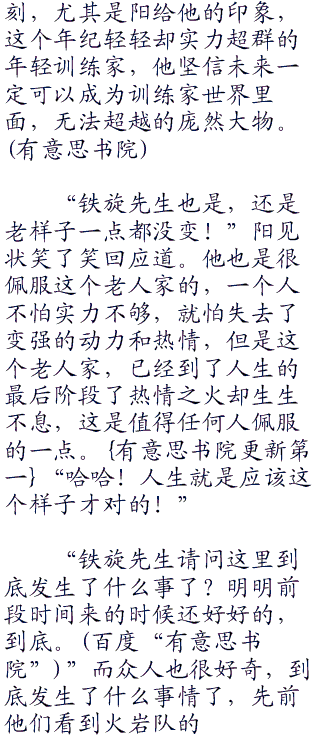 刻，尤其是阳给他的印象，
这个年纪轻轻却实力超群的
年轻训练家，他坚信未来一
定可以成为训练家世界里
面，无法超越的庞然大物。
(有意思书院)
“铁旋先生也是，还是
老样子一点都没变！”阳见
状笑了笑回应道。他也是很
佩服这个老人家的，一个人
不怕实力不够，就怕失去了
变强的动力和热情，但是这
个老人家，已经到了人生的
最后阶段了热情之火却生生
不息，这是值得任何人佩服
的一点。{有意思书院更新第
一}“哈哈！人生就是应该这
个样子才对的！”
“铁旋先生请问这里到
底发生了什么事了？明明前
段时间来的时候还好好的，
到底。(百度“有意思书
院”)”而众人也很好奇，到
底发生了什么事情了，先前
他们看到火岩队的